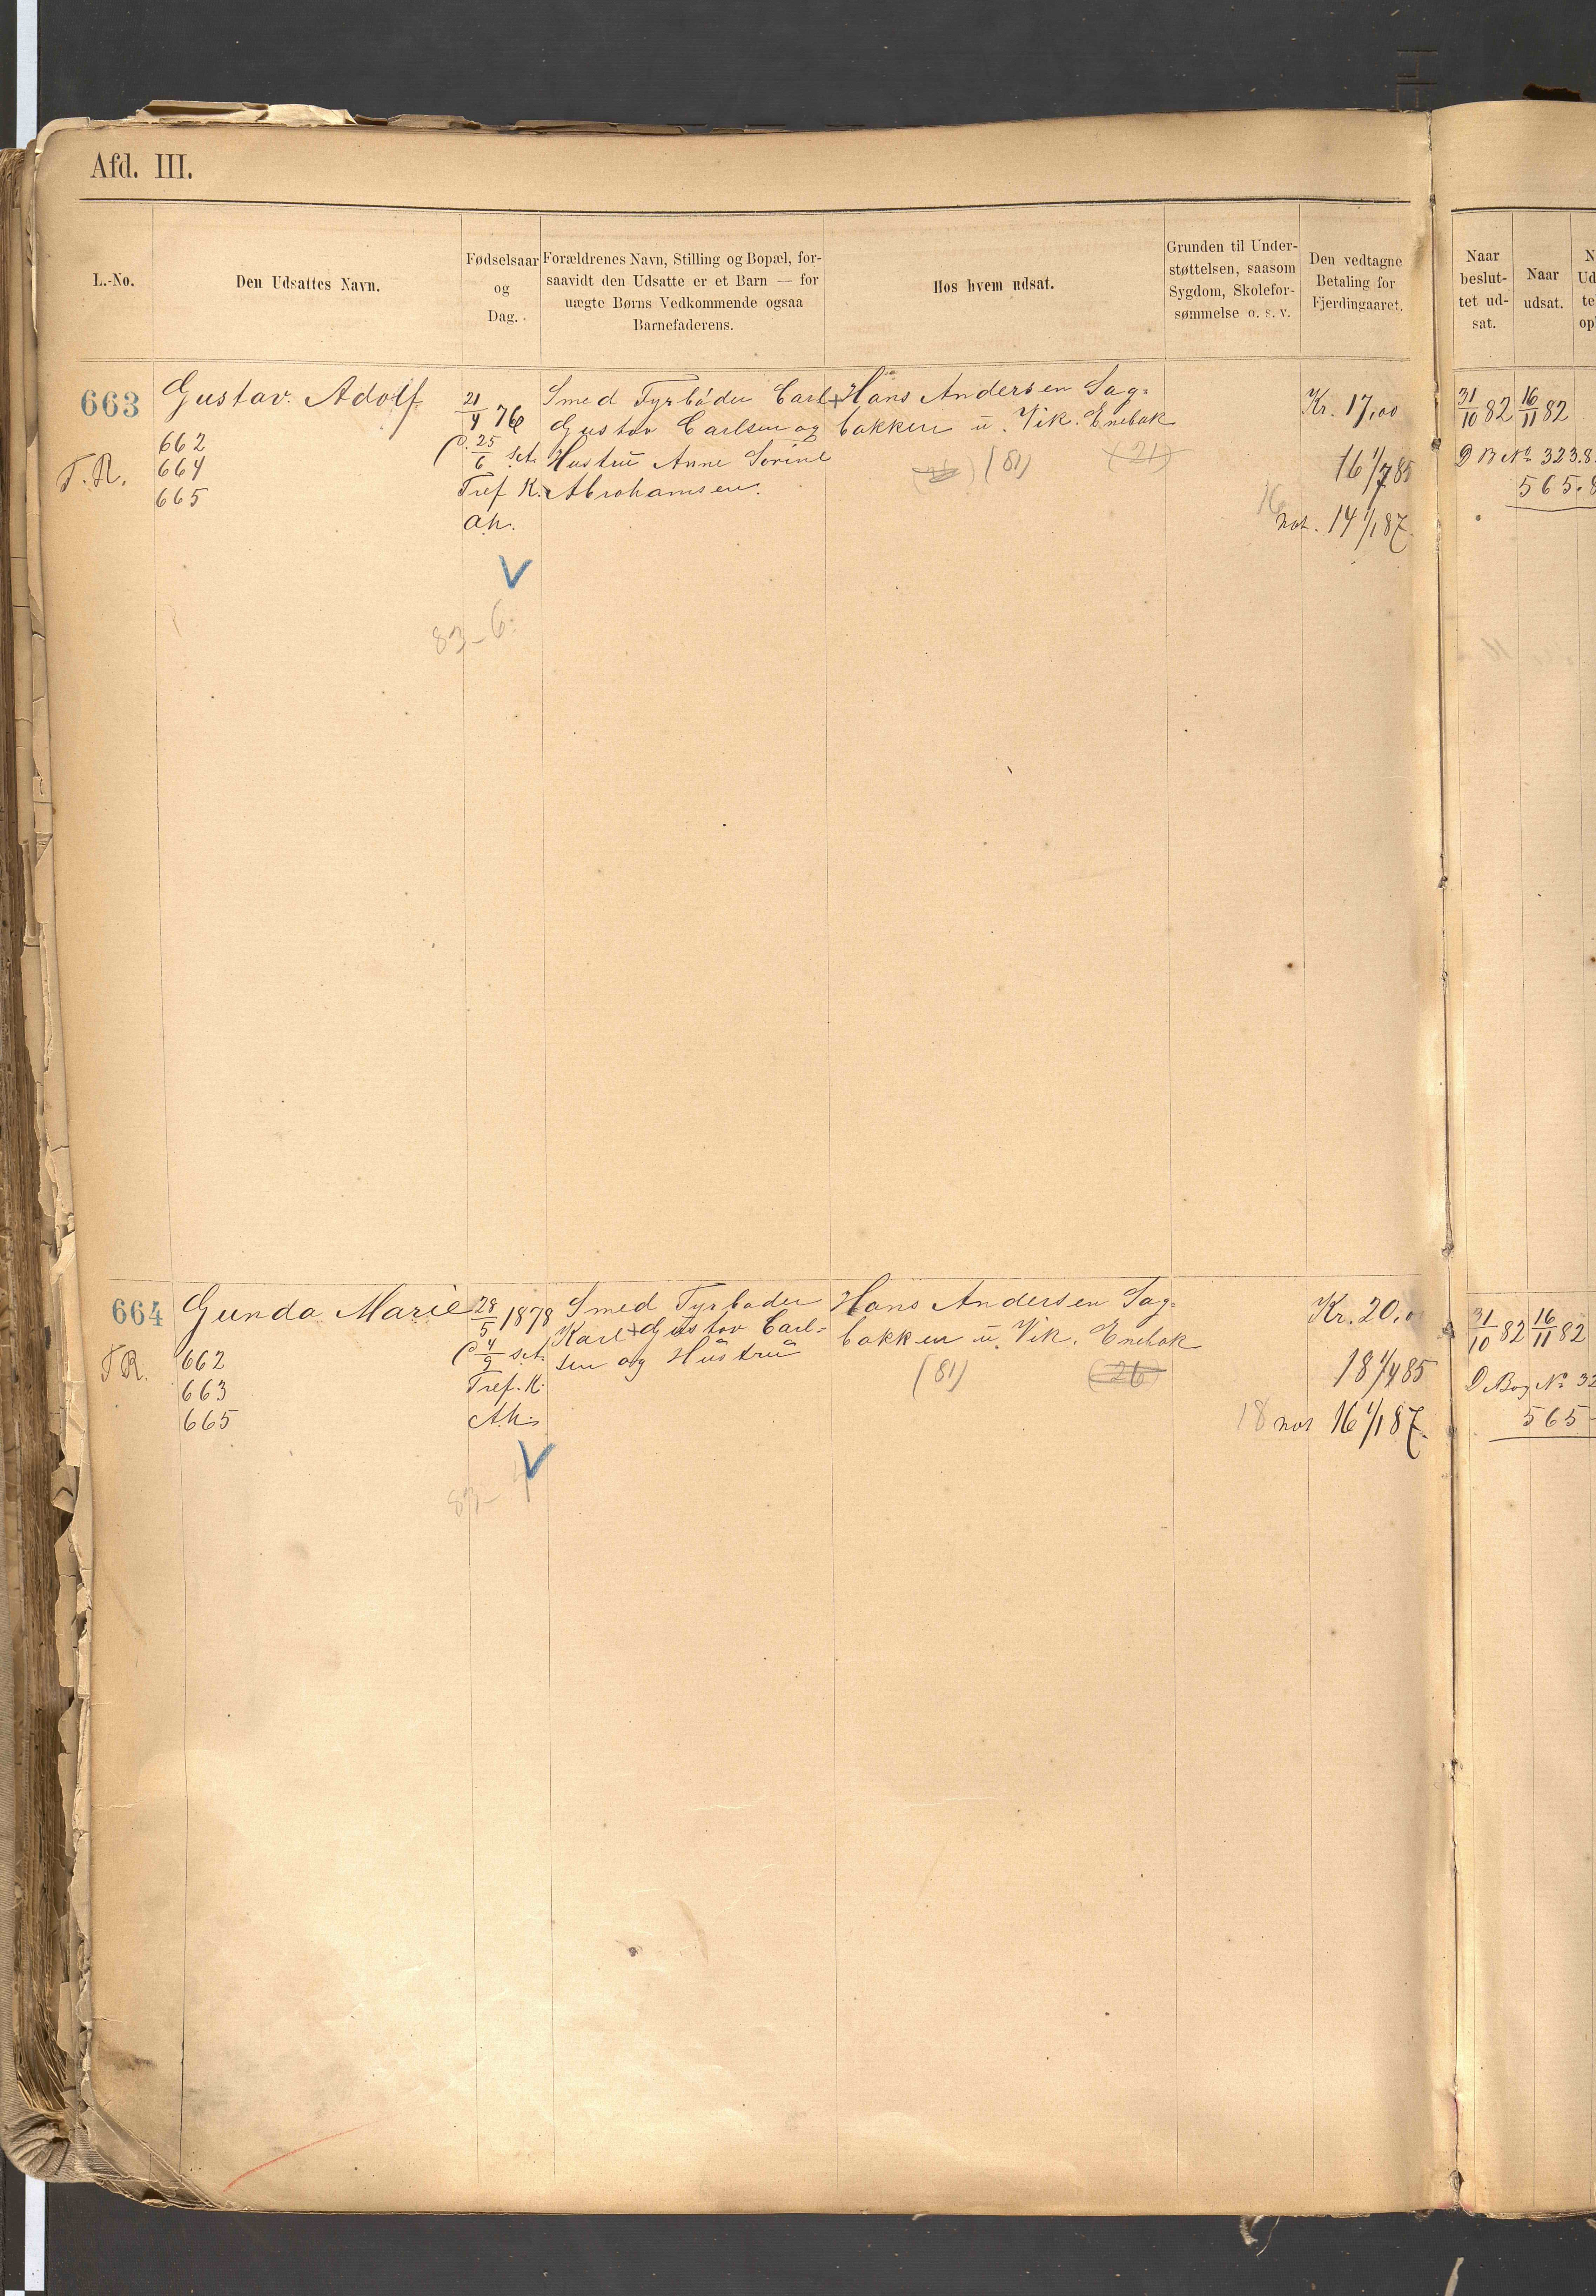 Afd. III.
L.-No.
Den Udsattes Navn.
Fødselsaar
og
Dag.
Forældrenes Navn, Stilling og Bopæl, for-
saavidt den Udsatte er et Barn — for
uægte Børns Vedkommende ogsaa
Barnefaderens.
Hos hvem udsat.
Grunden til Under-
støttelsen, saasom
Sygdom, Skolefor-
sømmelse o. s. v.
Den vedtagne
Betaling for
Fjerdingaaret.
Naar
beslut-
tet ud-
sat.
Naar
udsat.
663
Gustav Adolf
662
T.R. 664
665
21/4 76
25/6 set.
Tref K.
ah.
V
83-6
Smed Fyrbøder Carl
Gustav Carlsen og
Hustru Anne Sorine
Abrahamsen.
Hans Andersen Sag-
bakken u. Vik. Enebak
(81) (21)
Kr. 17,00
16 1/7 85
16 not. 14 1/1 87.
31/10 82 16/11 82
D B No 323.8
565.8
664
Gunda Marie
TR. 662
663
665
28/5 1878
4/9 set.
Tref. K.
Ah.
V
Smed Fyrbøder
Karl Gustav Carl-
sen og Hustru
Hans Andersen Sag-
bakken u. Vik. Enebak
(81) (26)
Kr. 20,0
18 1/4 85
18 not 16 1/1 87.
31/10 82 16/11 82
D Bog No 32
565-